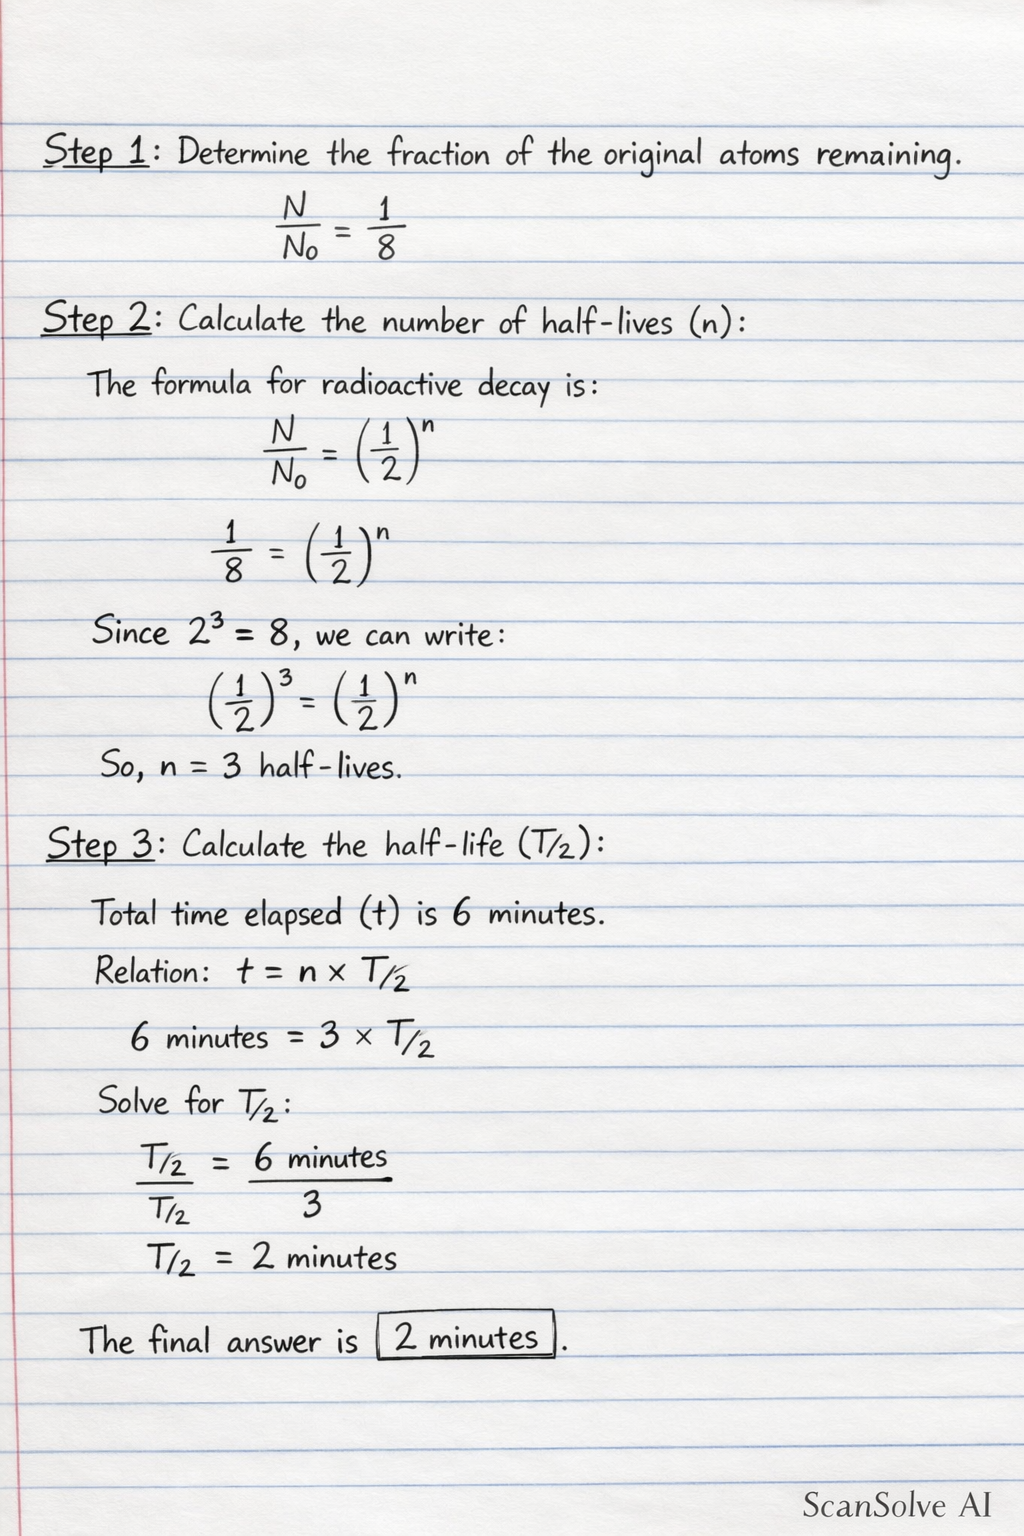 Step 1: Determine the fraction of the original atoms remaining.
N/No = 1/8
Step 2: Calculate the number of half-lives (n):
The formula for radioactive decay is:
N/No = (1/2)^n
1/8 = (1/2)^n
Since 2³ = 8, we can write:
(1/2)³ = (1/2)^n
So, n = 3 half-lives.
Step 3: Calculate the half-life (T/2):
Total time elapsed (t) is 6 minutes.
Relation: t = n × T/2
6 minutes = 3 × T/2
Solve for T/2:
T/2 / T/2 = 6 minutes / 3
T/2 = 2 minutes
The final answer is 2 minutes.
ScanSolve AI